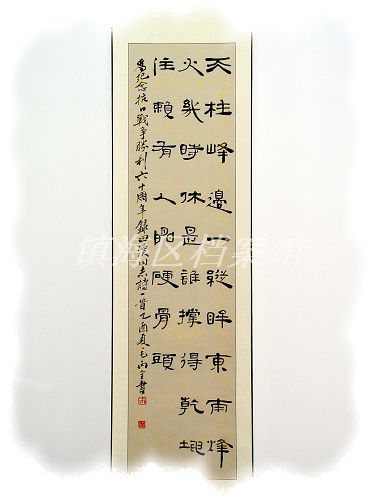 天柱峰邊一縱眸東南烽
火幾時休是誰撐得乾坤
住賴有人民硬骨頭
為紀念抗日戰爭勝利六十周年錄田漢同志詩一首乙酉夏毛書
镇海区档案